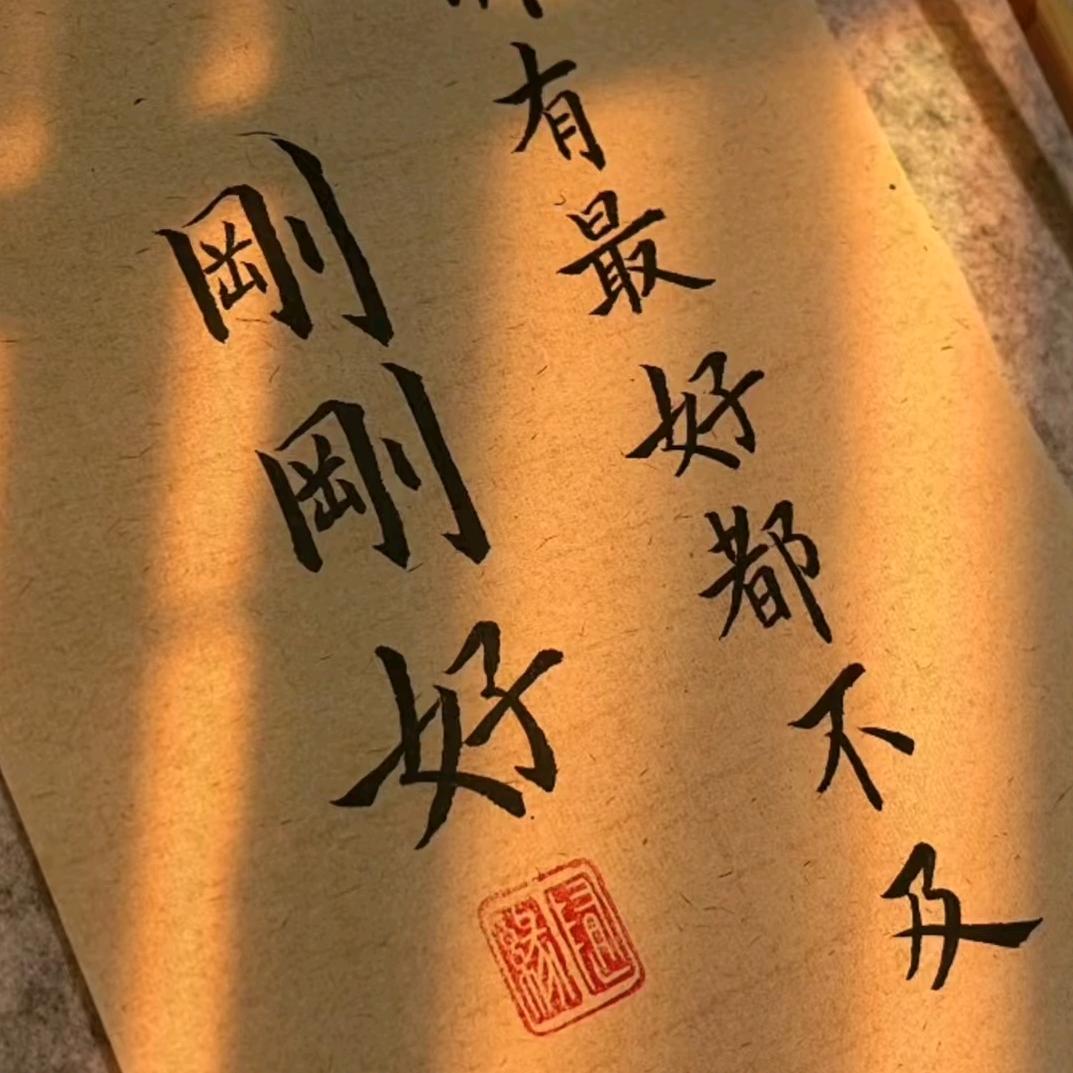 有最好都不及
剛剛好